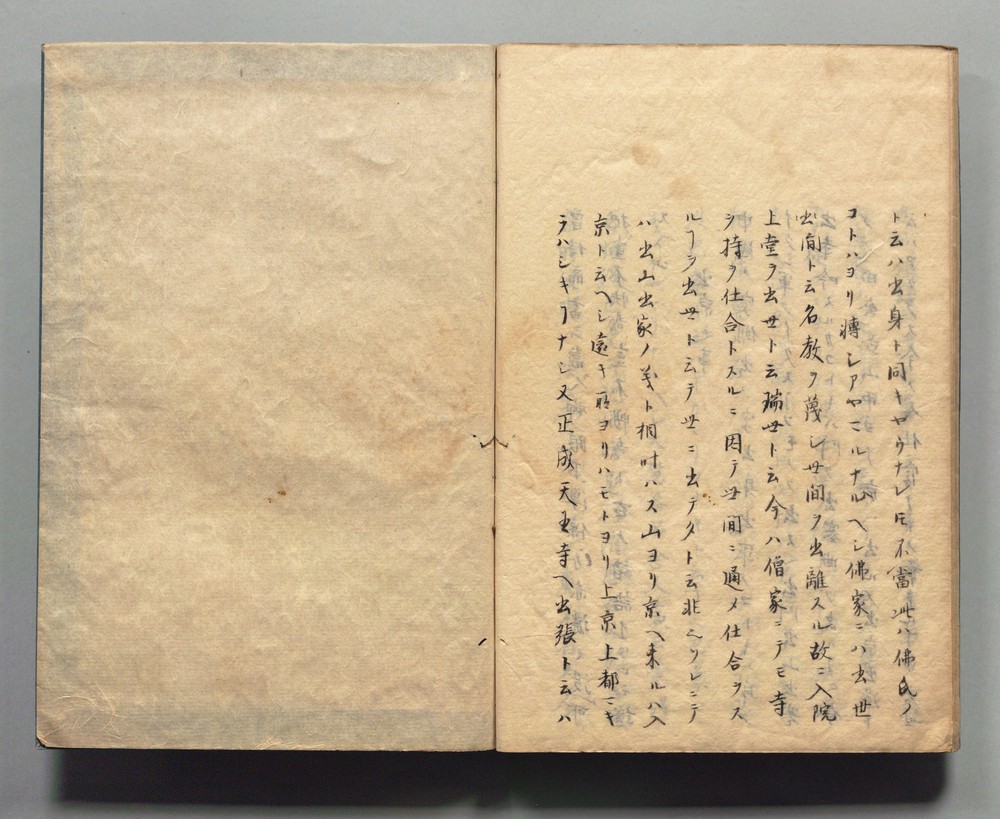 ト云ハ出身ト同キヤウナレ𪜈不當此ハ佛氏ノ
コトハヨリ轉シアヤマルナルヘシ佛家ニハ出世
出間ト云名教ヲ蔑シ世間ヲ出離スル故ニ入院
上堂ヲ出世ト云瑞世ト云今ハ僧家ニテモ寺
ヲ持ヲ仕合トスルニ因テ世間ニ通メ仕合ヲス
ルヿヲ出世ト云テ世ニ出テタト云非也ソレニテ
ハ出山出家ノ義ト相叶ハス山ヨリ京ヘ来ルハ入
京ト云ヘシ遠キ所ヨリハモトヨリ上京上都マキ
ラハシキヿナシ又正成天王寺ヘ出張ト云ハ